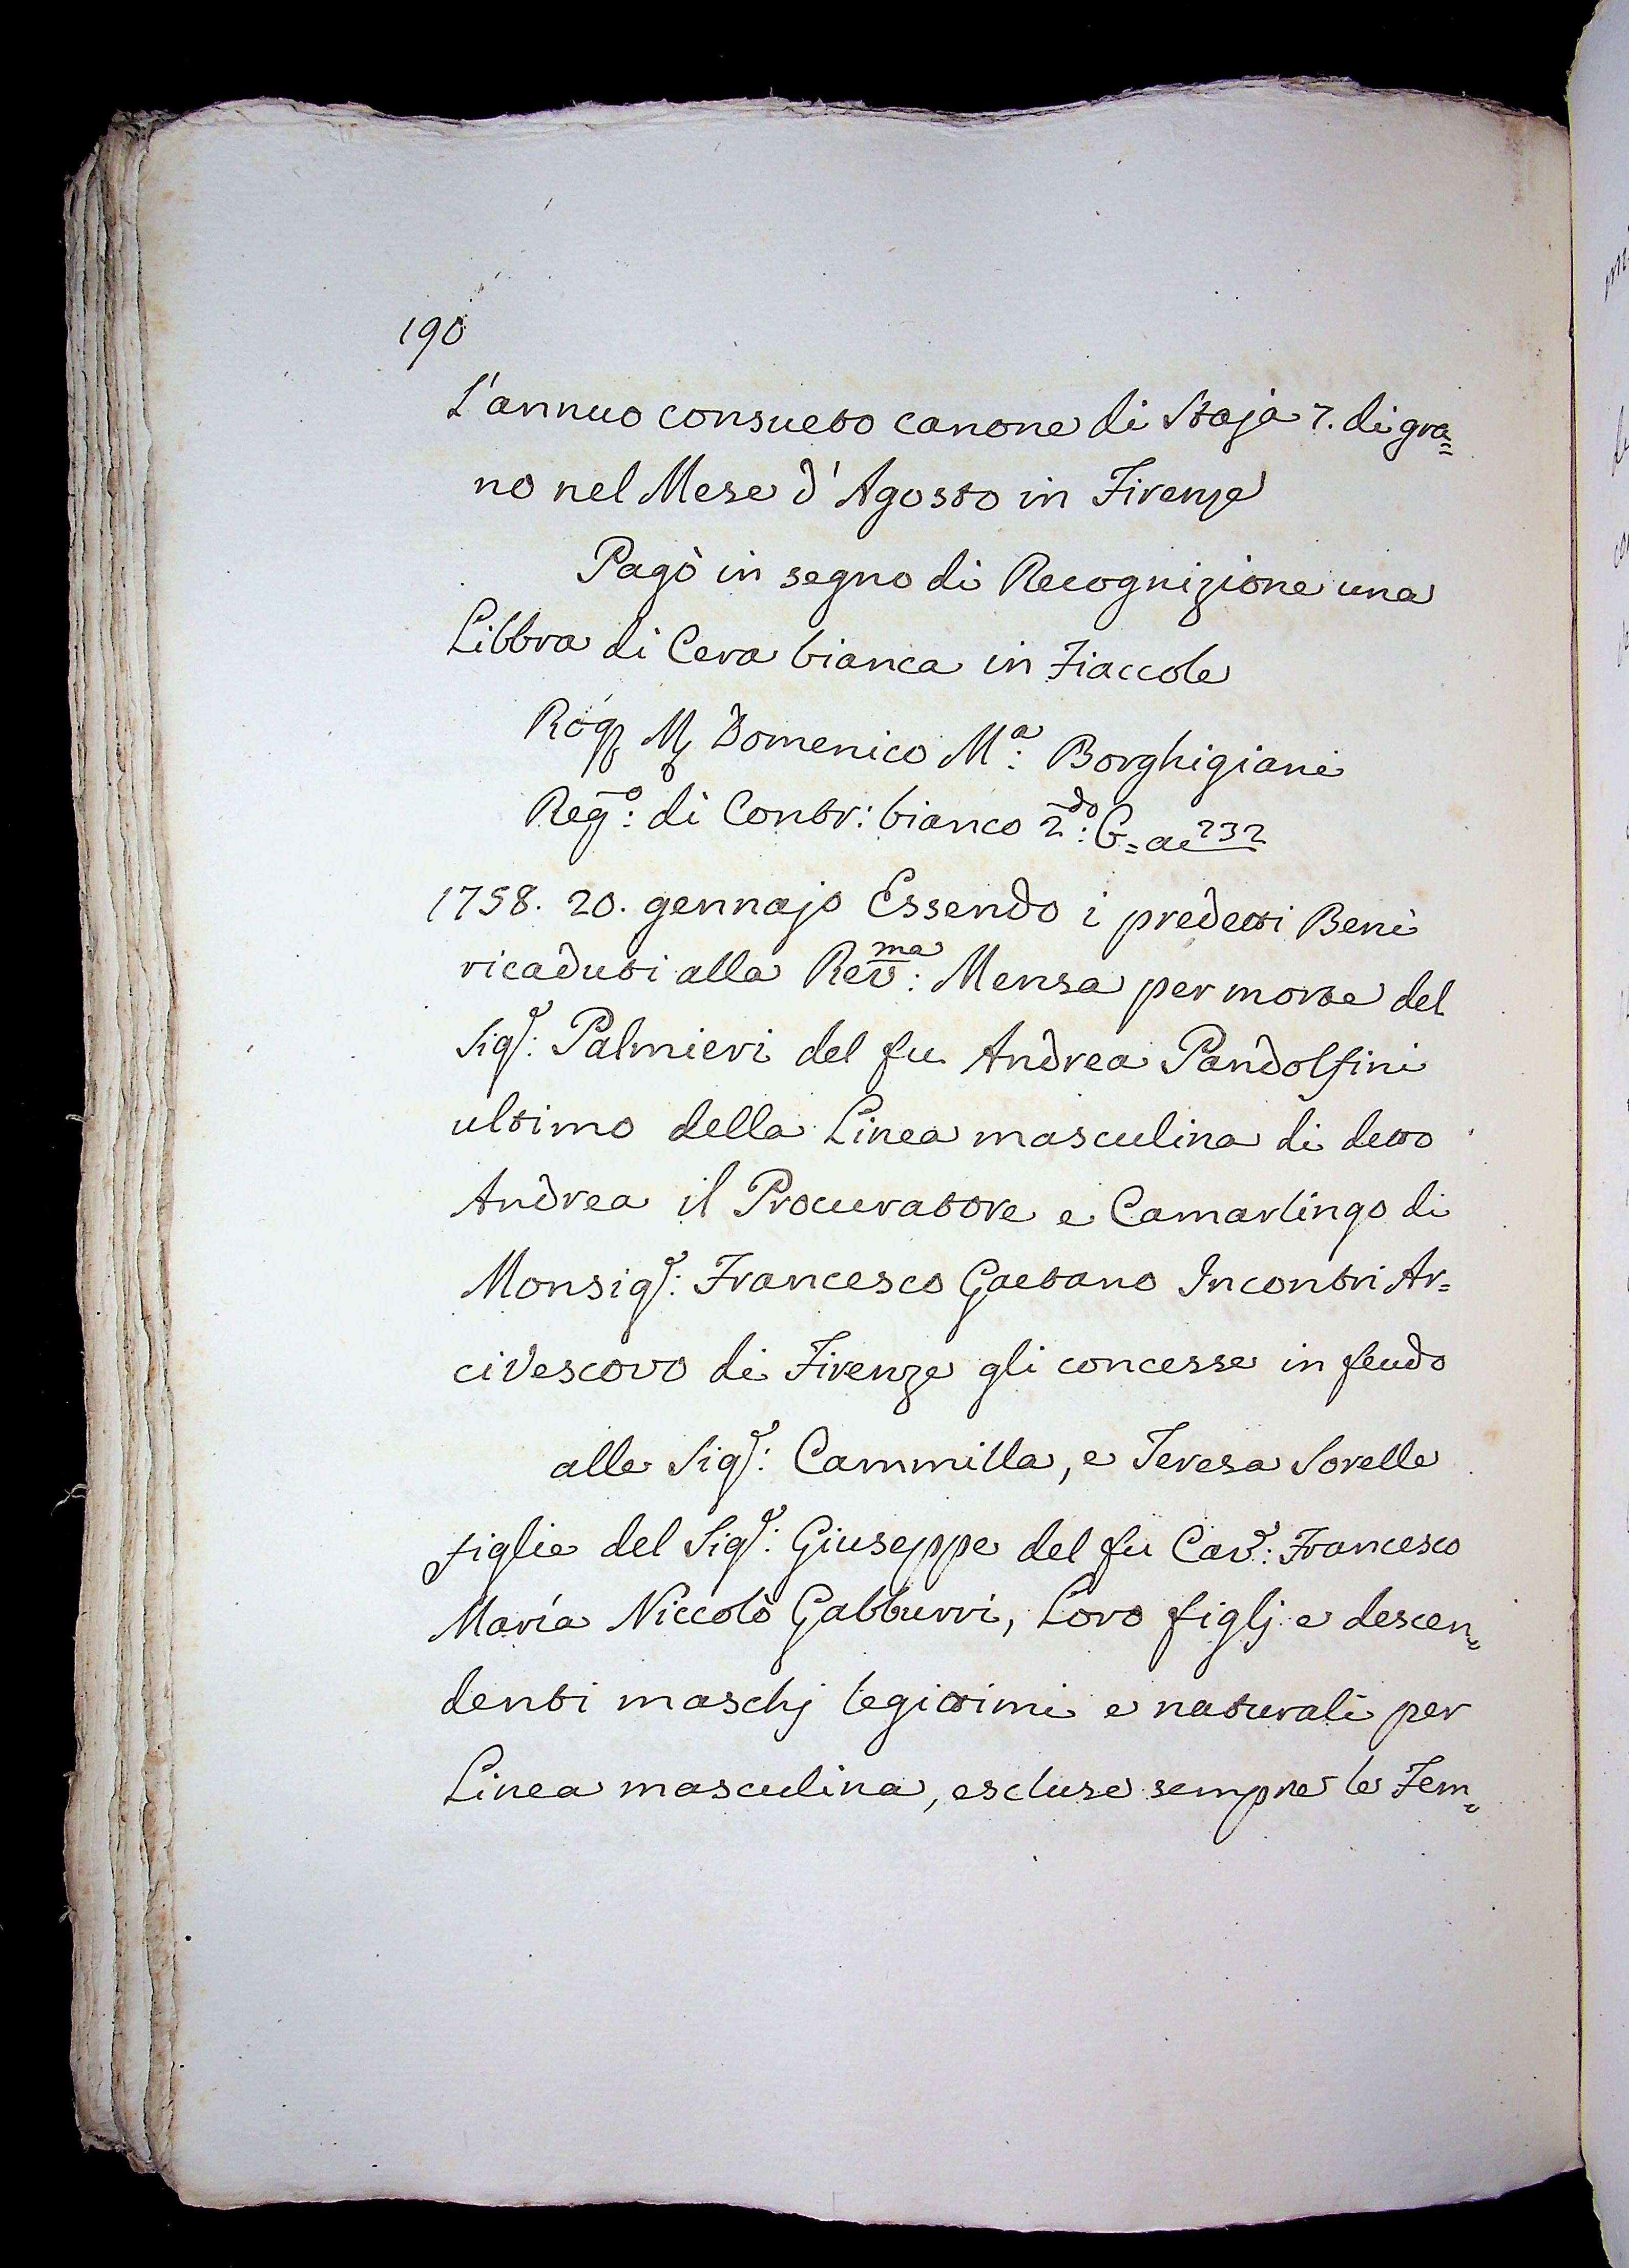 190
L'annuo consueto canone di Staja 7. di gra=
no nel Mese d'Agosto in Firenze
Pagò in segno di Recognizione una
Libbra di Cera bianca in Fiaccole
Rog. Domenico M.ª Borghigiani
Reg.º: di Contr: bianco 2.do: a 232
1758. 20. gennajo Essendo i predetti Beni
ricaduti alla Rev.ma: Mensa per morte del
Sig.r: Palmieri del fu Andrea Pandolfini
ultimo della Linea masculina di detto
Andrea il Procuratore e Camarlingo di
Monsig.r: Francesco Gaetano Incontri Ar=
civescovo di Firenze gli concesse in feudo
alle Sig.e: Cammilla, e Teresa Sorelle
figlie del Sig.r: Giuseppe del fu Cav.r: Francesco
Maria Niccolò Gabburri, Loro figlj e descen=
denti maschj legittimi e naturali per
Linea masculina, escluse sempre le Fem=